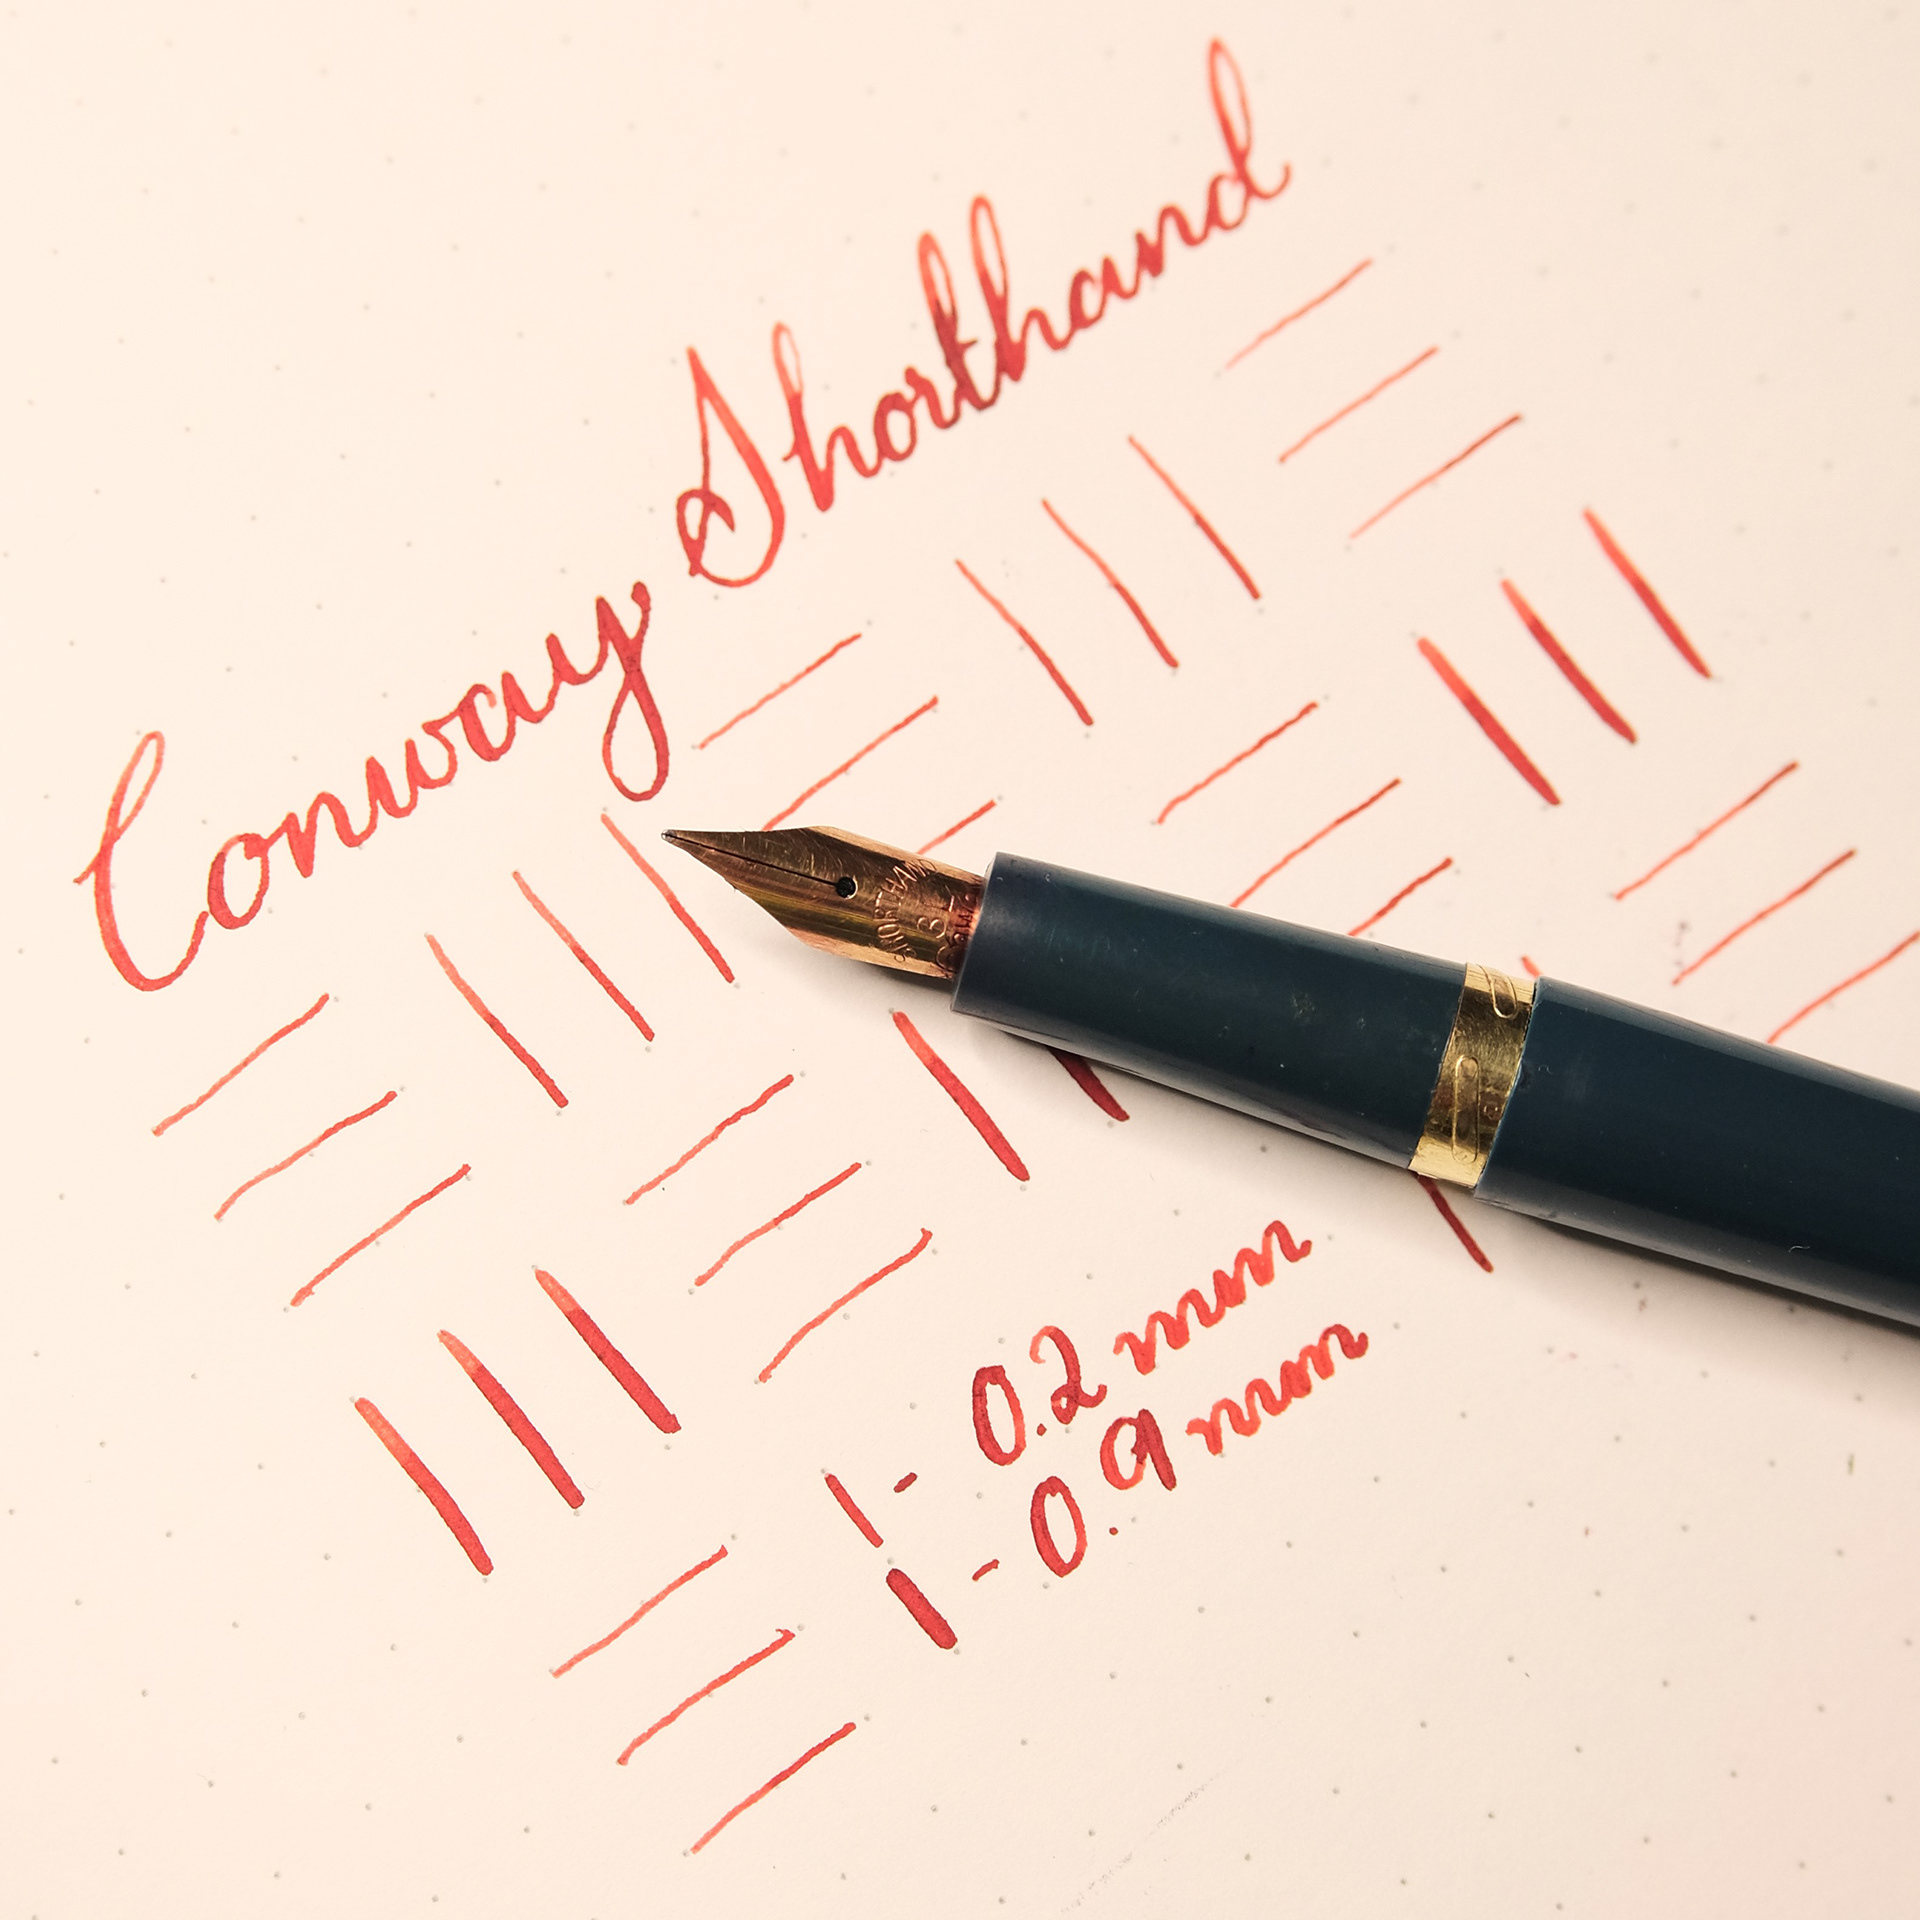 Conway Shorthand
0.2 mm
0.9 mm
SHORTHAND